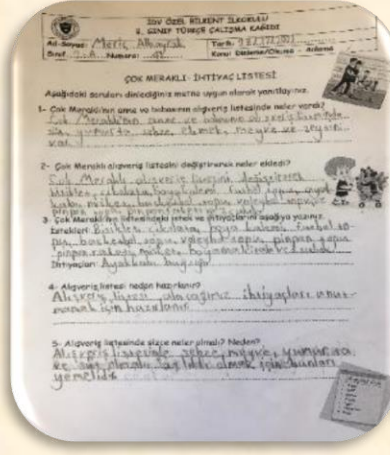 İDV ÖZEL BİLKENT İLKOKULU
2. SINIF TÜRKÇE ÇALIŞMA KAĞIDI
Ad-Soyad: Meriç Tarih:
Sınıf: 2-A Numara: Konu: Dinleme/Okuma - Anlama
ÇOK MERAKLI- İHTİYAÇ LİSTESİ
Aşağıdaki soruları dinlediğiniz metne uygun olarak yanıtlayınız.
1- Çok Meraklı'nın anne ve babasının alışveriş listesinde neler vardı?
Çok Meraklı'nın anne ve alışveriş
süt, yumurta, sebze, ekmek, meyve ve zeytin
var.
2- Çok Meraklı alışveriş listesini değiştirerek neler ekledi?
Çok Meraklı alışveriş listesini değiştirerek
bisiklet, çikolata, boya kalemi, futbol topu, ayak
kabı, basketbol topu, voleybol topu,
pinpon topu, pinpon
3- Çok Meraklı'nın listesindeki istek ve ihtiyaçlarını aşağıya yazınız.
İstekleri: Bisiklet, çikolata, boya kalemi, futbol to
pu, basketbol topu, voleybol topu, pinpon topu
pinpon
İhtiyaçları: Ayakkabı
4- Alışveriş listesi neden hazırlanır?
Alışveriş listesi alacağımız ihtiyaçları unut-
mamak için hazırlanır.
5- Alışveriş listesinde sizce neler olmalı? Neden?
Alışveriş listesinde sebze, meyve, yumurta
ve süt olmalı sağlıklı olmak için bunları
yemeliyiz